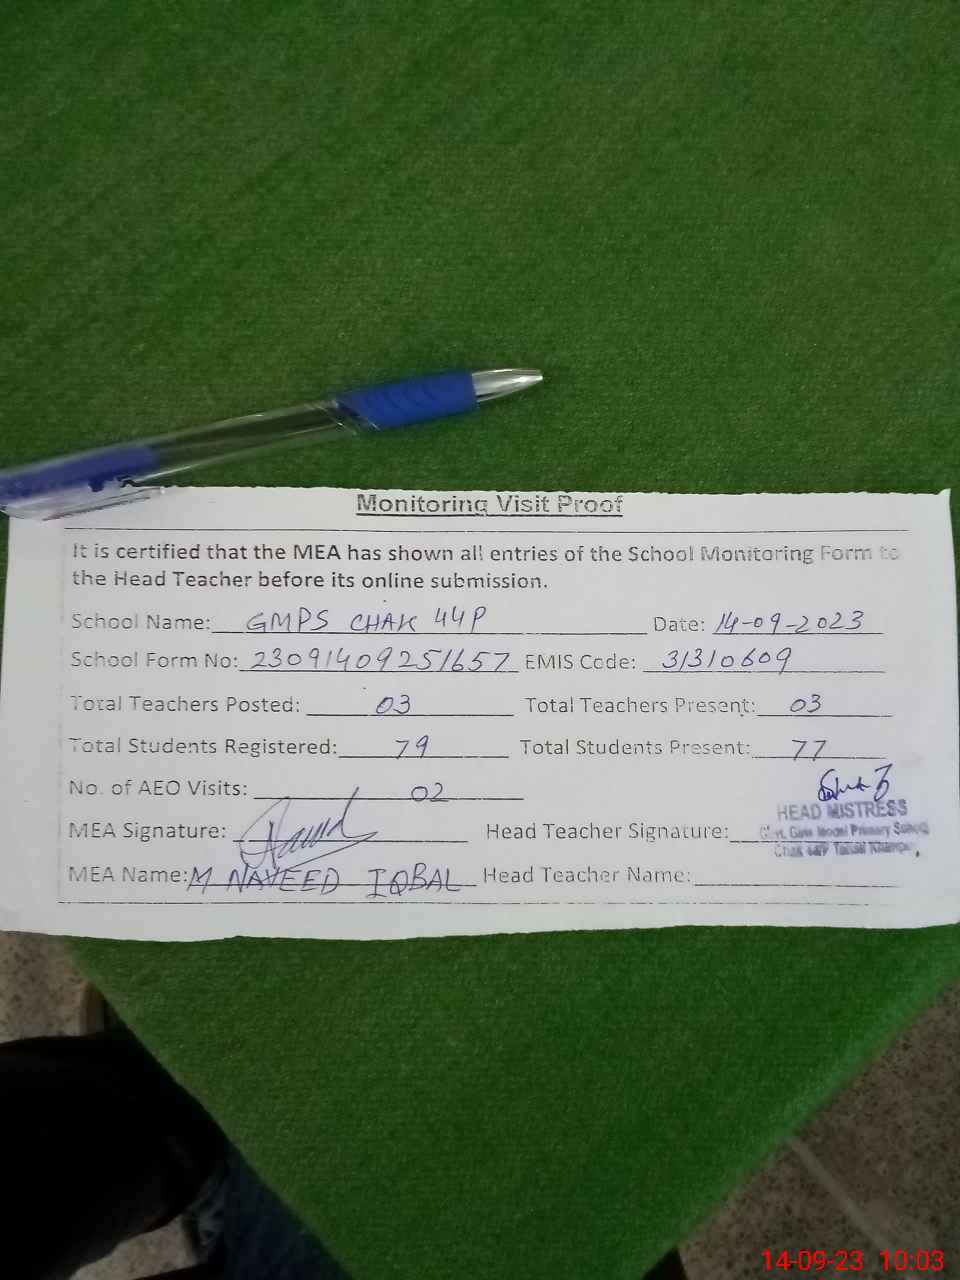 Monitoring Visit Proof
It is certified that the MEA has shown all entries of the School Monitoring Form to
the Head Teacher before its online submission.
School Name: GMPS CHAK 44P Date: 14-09-2023
School Form No: 23091409251657 EMIS Code: 31310609
Total Teachers Posted: 03 Total Teachers Present: 03
Total Students Registered: 79 Total Students Present: 77
No. of AEO Visits: 02
HEAD MISTRESS
MEA Signature: Head Teacher Signature: Govt. Girls Model Primary School
Chak 44/P Tehsil Khanpur
MEA Name: M NAVEED IQBAL Head Teacher Name:
14-09-23 10:03